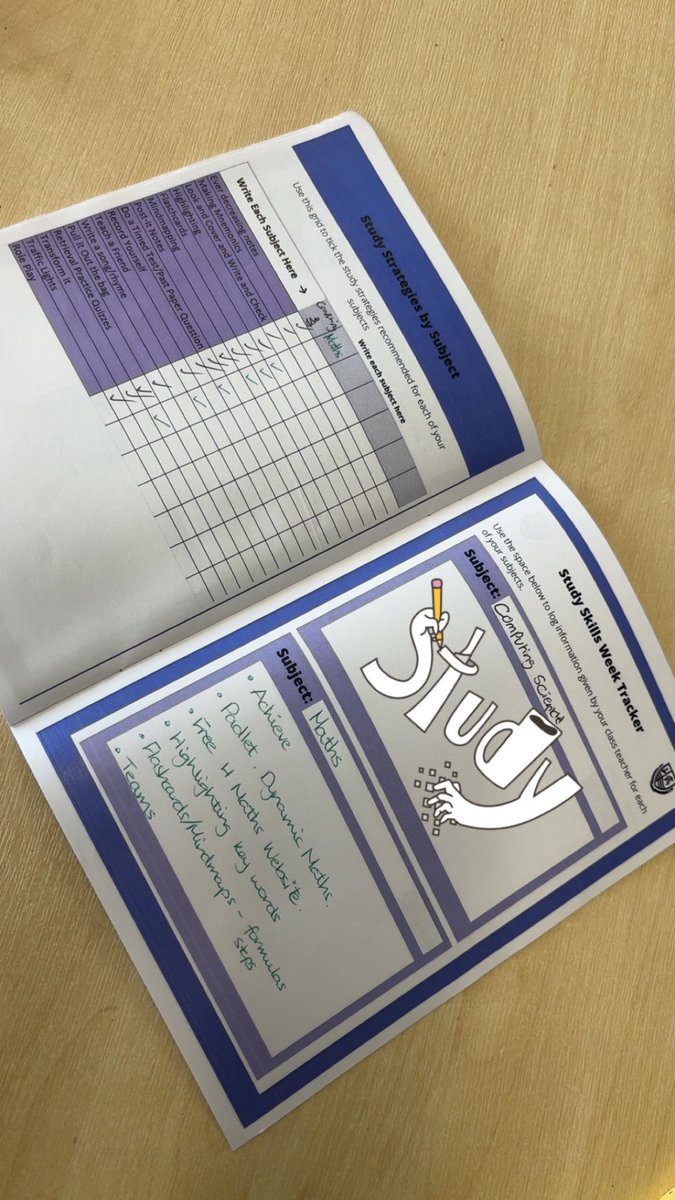 Study Strategies by Subject
Use this grid to tick the study strategies recommended for each of your
subjects
Write each subject here
Write Each Subject Here →
Computing
Maths
Ever decreasing notes
Making Mnemonics
Look and Cover and Write and Check
Highlighting
Flashcards
Mindmapping
Post-it Notes
Do a Timed Test/Past Paper Question
Record Yourself
Teach a Friend
Write a song/rhyme
Pull it Out the bag
Retrieval Practice Quizzes
Transform it
Traffic Lights
Role Play
Study Skills Week Tracker
Use the space below to log information given by your class teacher for each
of your subjects.
Subject: Computing Science
Study
Subject: Maths
• Achieve
• Padlet. Dynamic Maths.
• Free 4 Maths Website.
• Highlighting key words
• Flashcards/Mindmaps - formulas
steps
• Teams